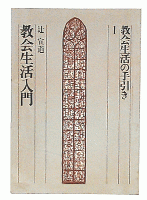 教会生活の手引き 1
辻 宣道
教会生活入門